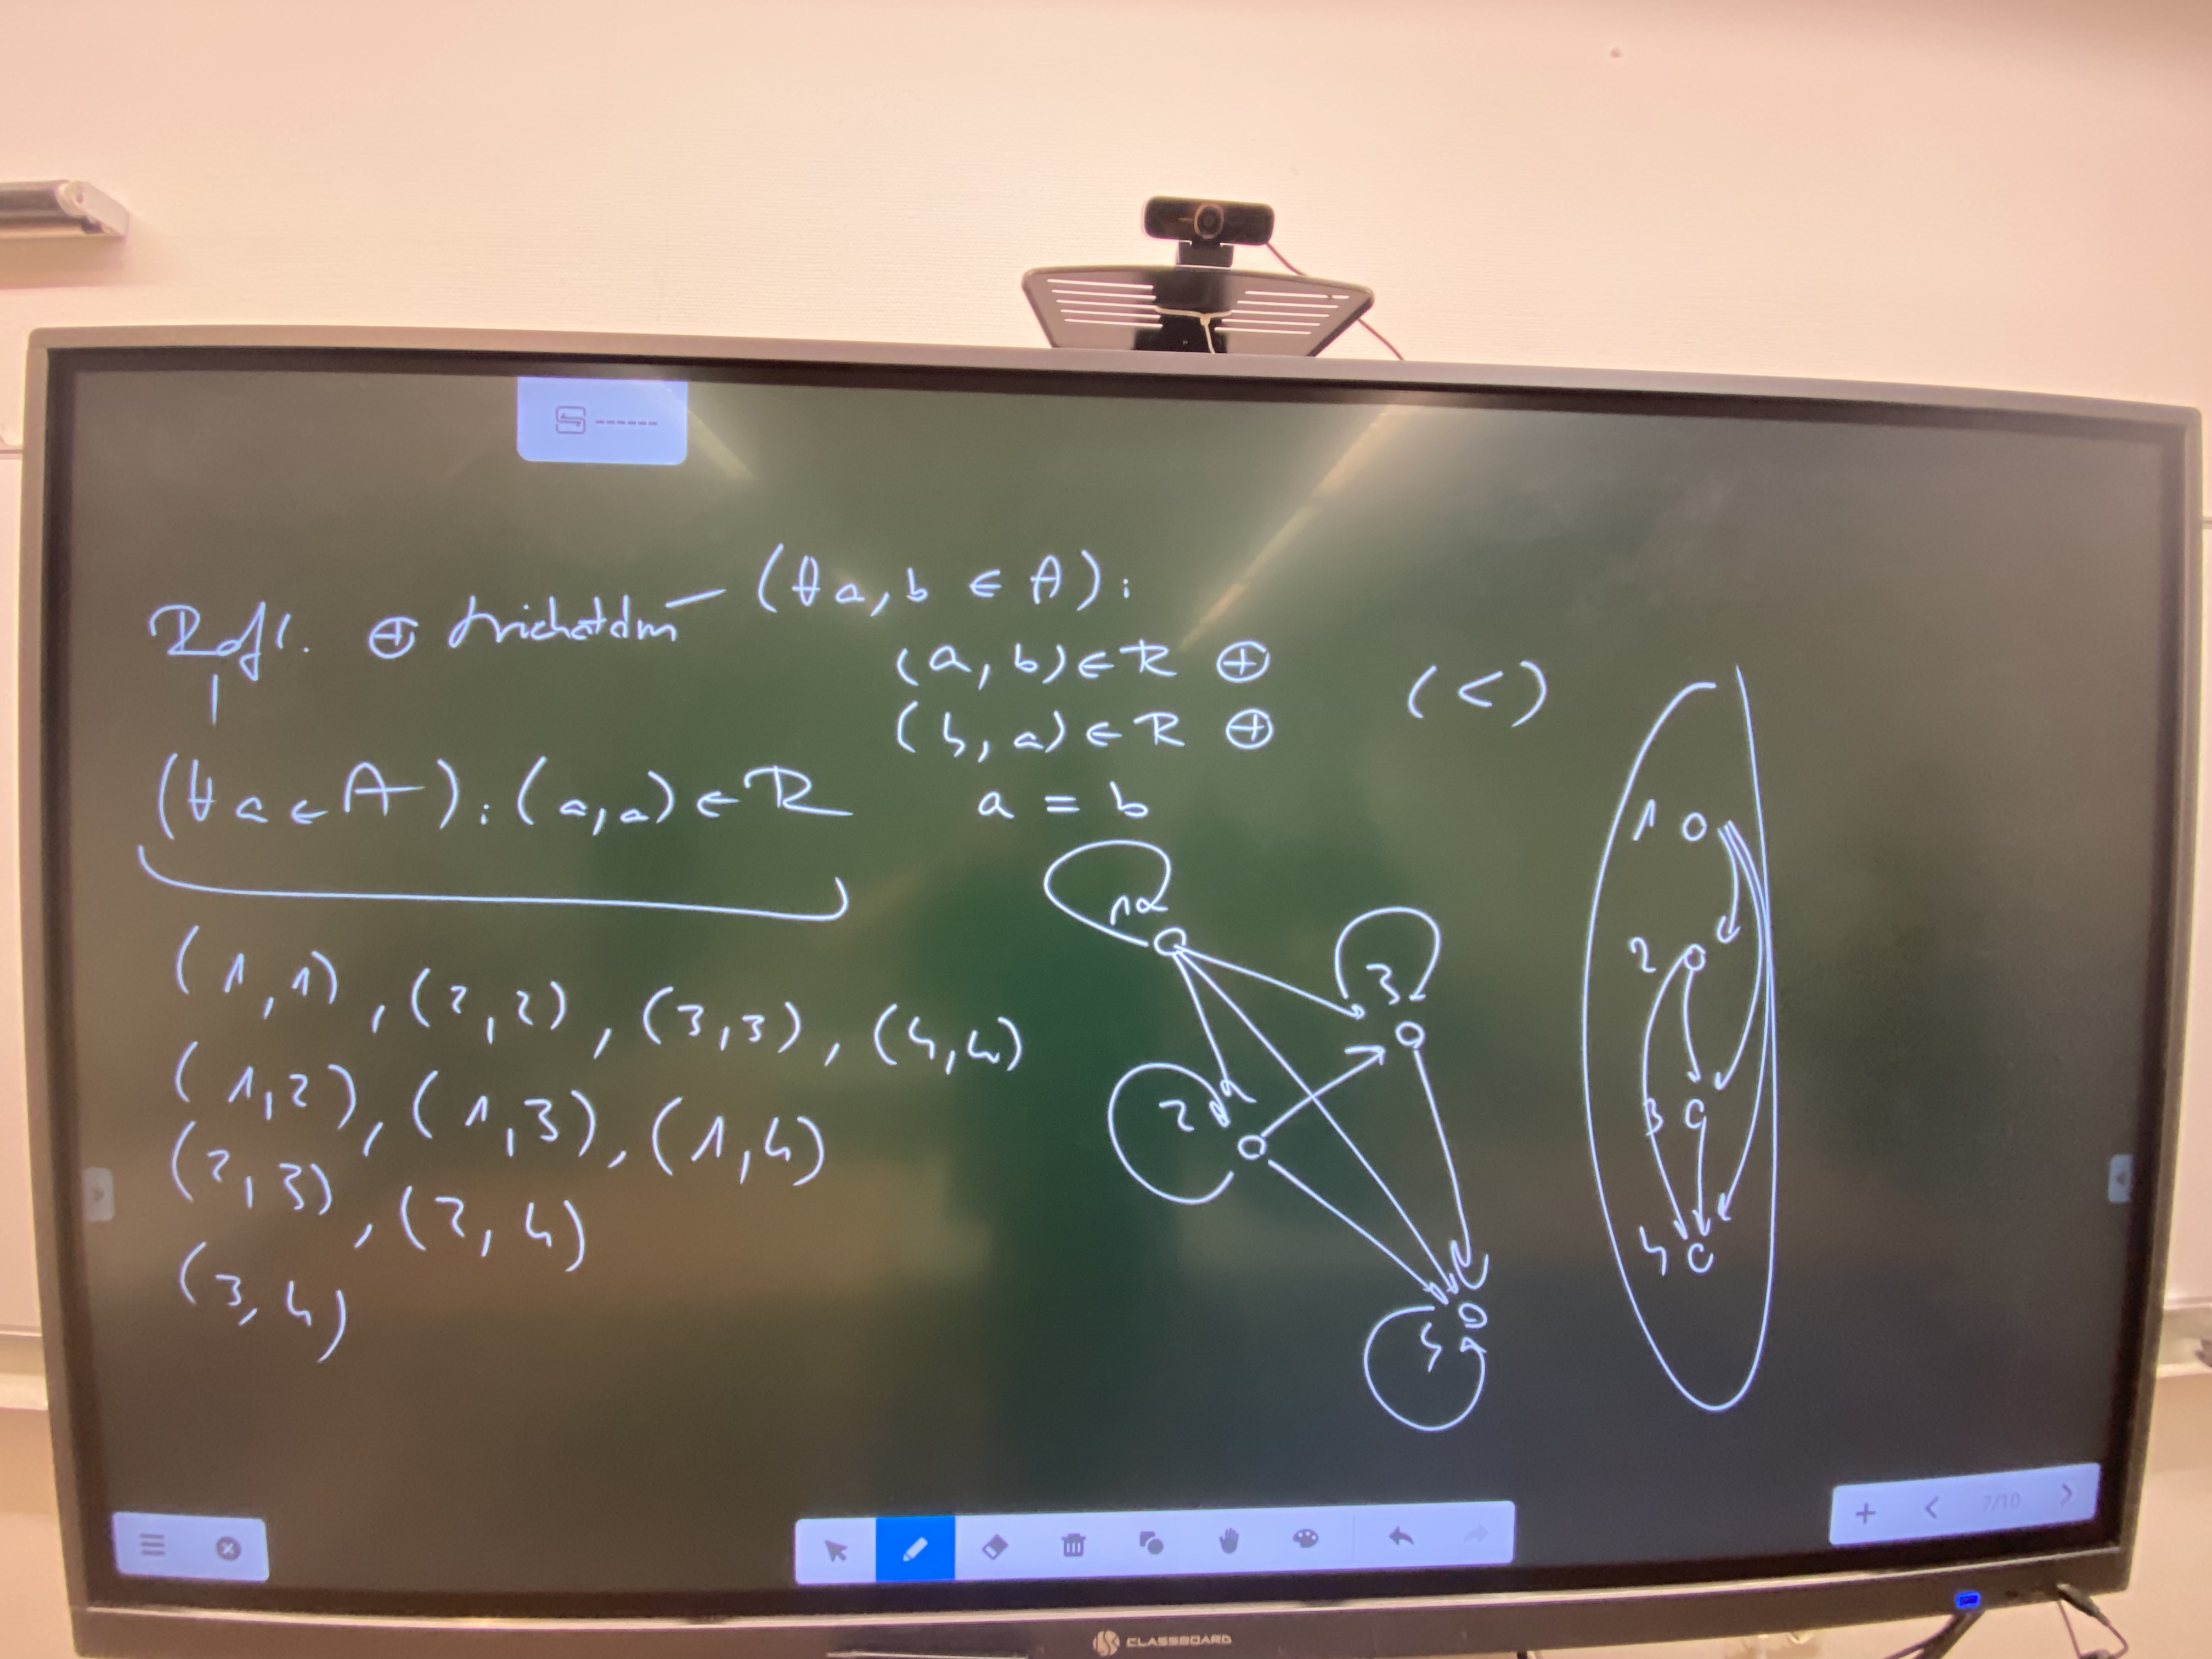 Refl. ⊕ trichotom — (∀a, b ∈ A):
(a, b) ∈ R ⊕
(b, a) ∈ R ⊕
a = b
(∀a ∈ A): (a, a) ∈ R
(1,1), (2,2), (3,3), (4,4)
(1,2), (1,3), (1,4)
(2,3), (2,4)
(3,4)
1
3
2
4
(<)
1
2
3
4
7/10
CLASSBOARD